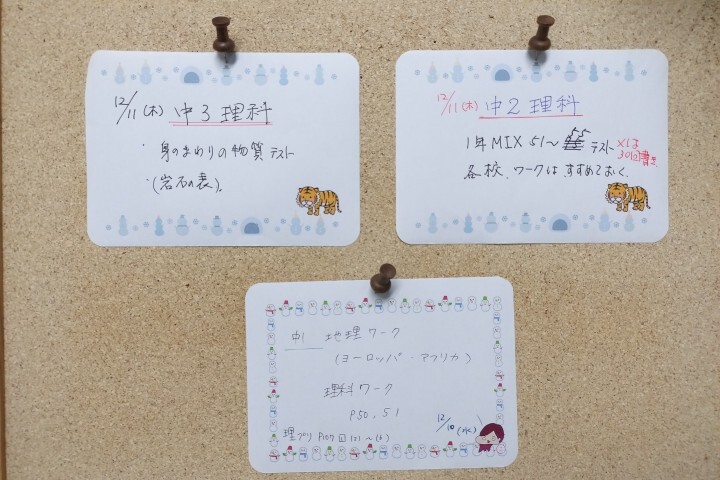 12/11(木) 中3 理科
・身のまわりの物質 テスト
・(岩石の表)。
12/11(木) 中2 理科
1年MIX 51〜55 テスト
×は
30回書き
各校、ワークはすすめておく。
中1 地理ワーク
(ヨーロッパ・アフリカ)
理科ワーク
P50, 51
理プリ P107
12/10(水)